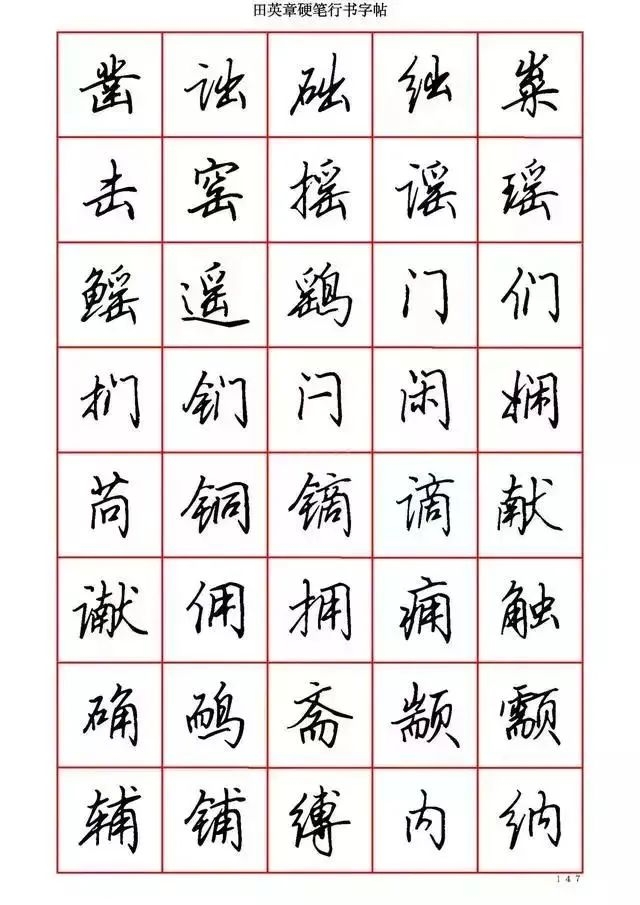 田英章硬笔行书字帖
凿 诎 础 绌 粜
击 窑 摇 谣 瑶
鳐 遥 鹞 门 们
扪 钔 闩 闲 娴
苘 铜 镝 谪 献
谳 佣 拥 痈 触
确 鸸 斋 颛 颥
辅 铺 缚 内 纳
147